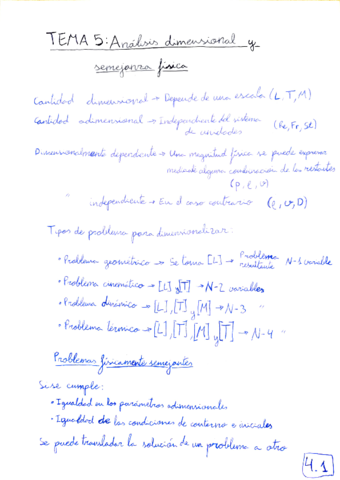 TEMA 5: Análisis dimensional y
semejanza física
Cantidad dimensional → Depende de una escala (L, T, M)
Cantidad adimensional → Independiente del sistema
de unidades (Re, Fr, St)
Dimensionalmente dependiente → Una magnitud física se puede expresar
mediante alguna combinación de las restantes
(p, ρ, v)
" independiente → En el caso contrario (ρ, v, D)
Tipos de problema para dimensionalizar:
• Problema geométrico → Se toma [L] → Problema resultante N-1 variable
• Problema cinemático → [L] y [T] → N-2 variables
• Problema dinámico → [L], [T] y [M] → N-3 "
• Problema térmico → [L], [T], [M] y [T] → N-4 "
Problemas físicamente semejantes
Si se cumple:
• Igualdad en los parámetros adimensionales
• Igualdad de las condiciones de contorno e iniciales
Se puede transladar la solución de un problema a otro
4.1